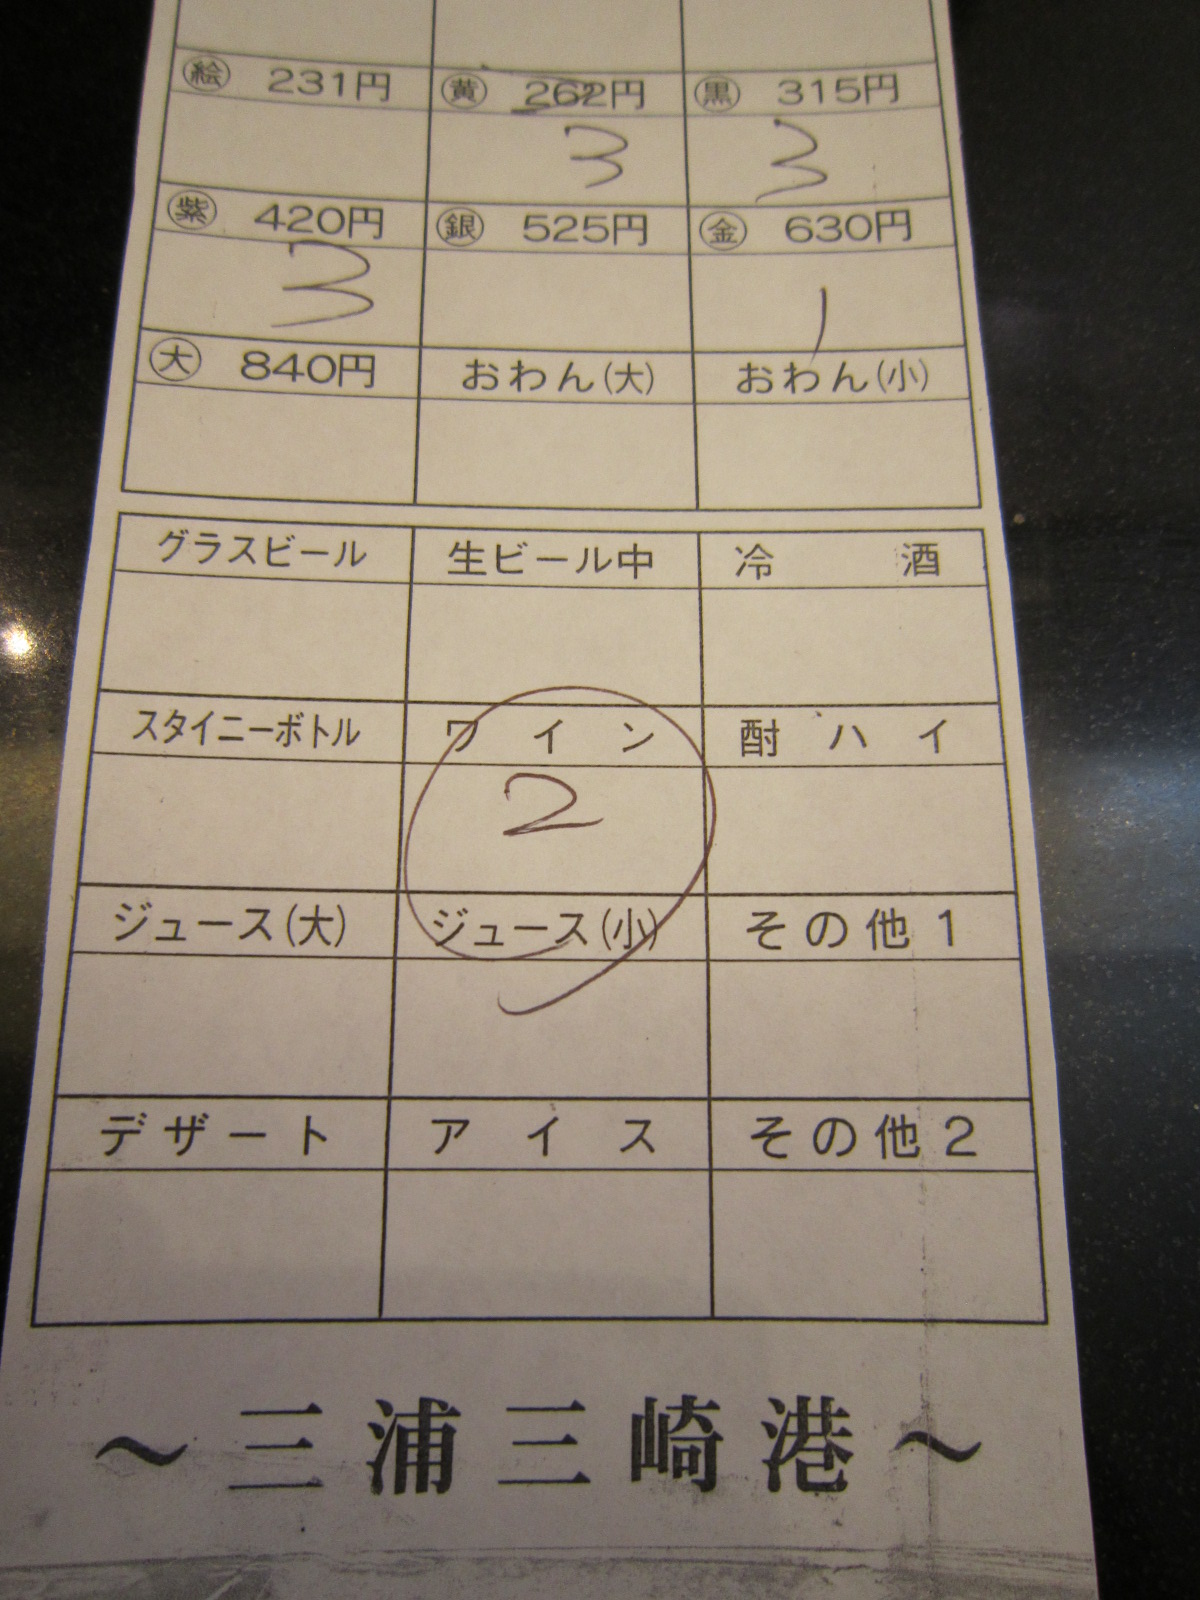 絵 231円 黄 262円 黒 315円
3 3
紫 420円 銀 525円 金 630円
3 1
大 840円 おわん(大) おわん(小)
グラスビール 生ビール中 冷酒
スタイニーボトル ワイン 酎ハイ
2
ジュース(大) ジュース(小) その他1
デザート アイス その他2
～三浦三崎港～